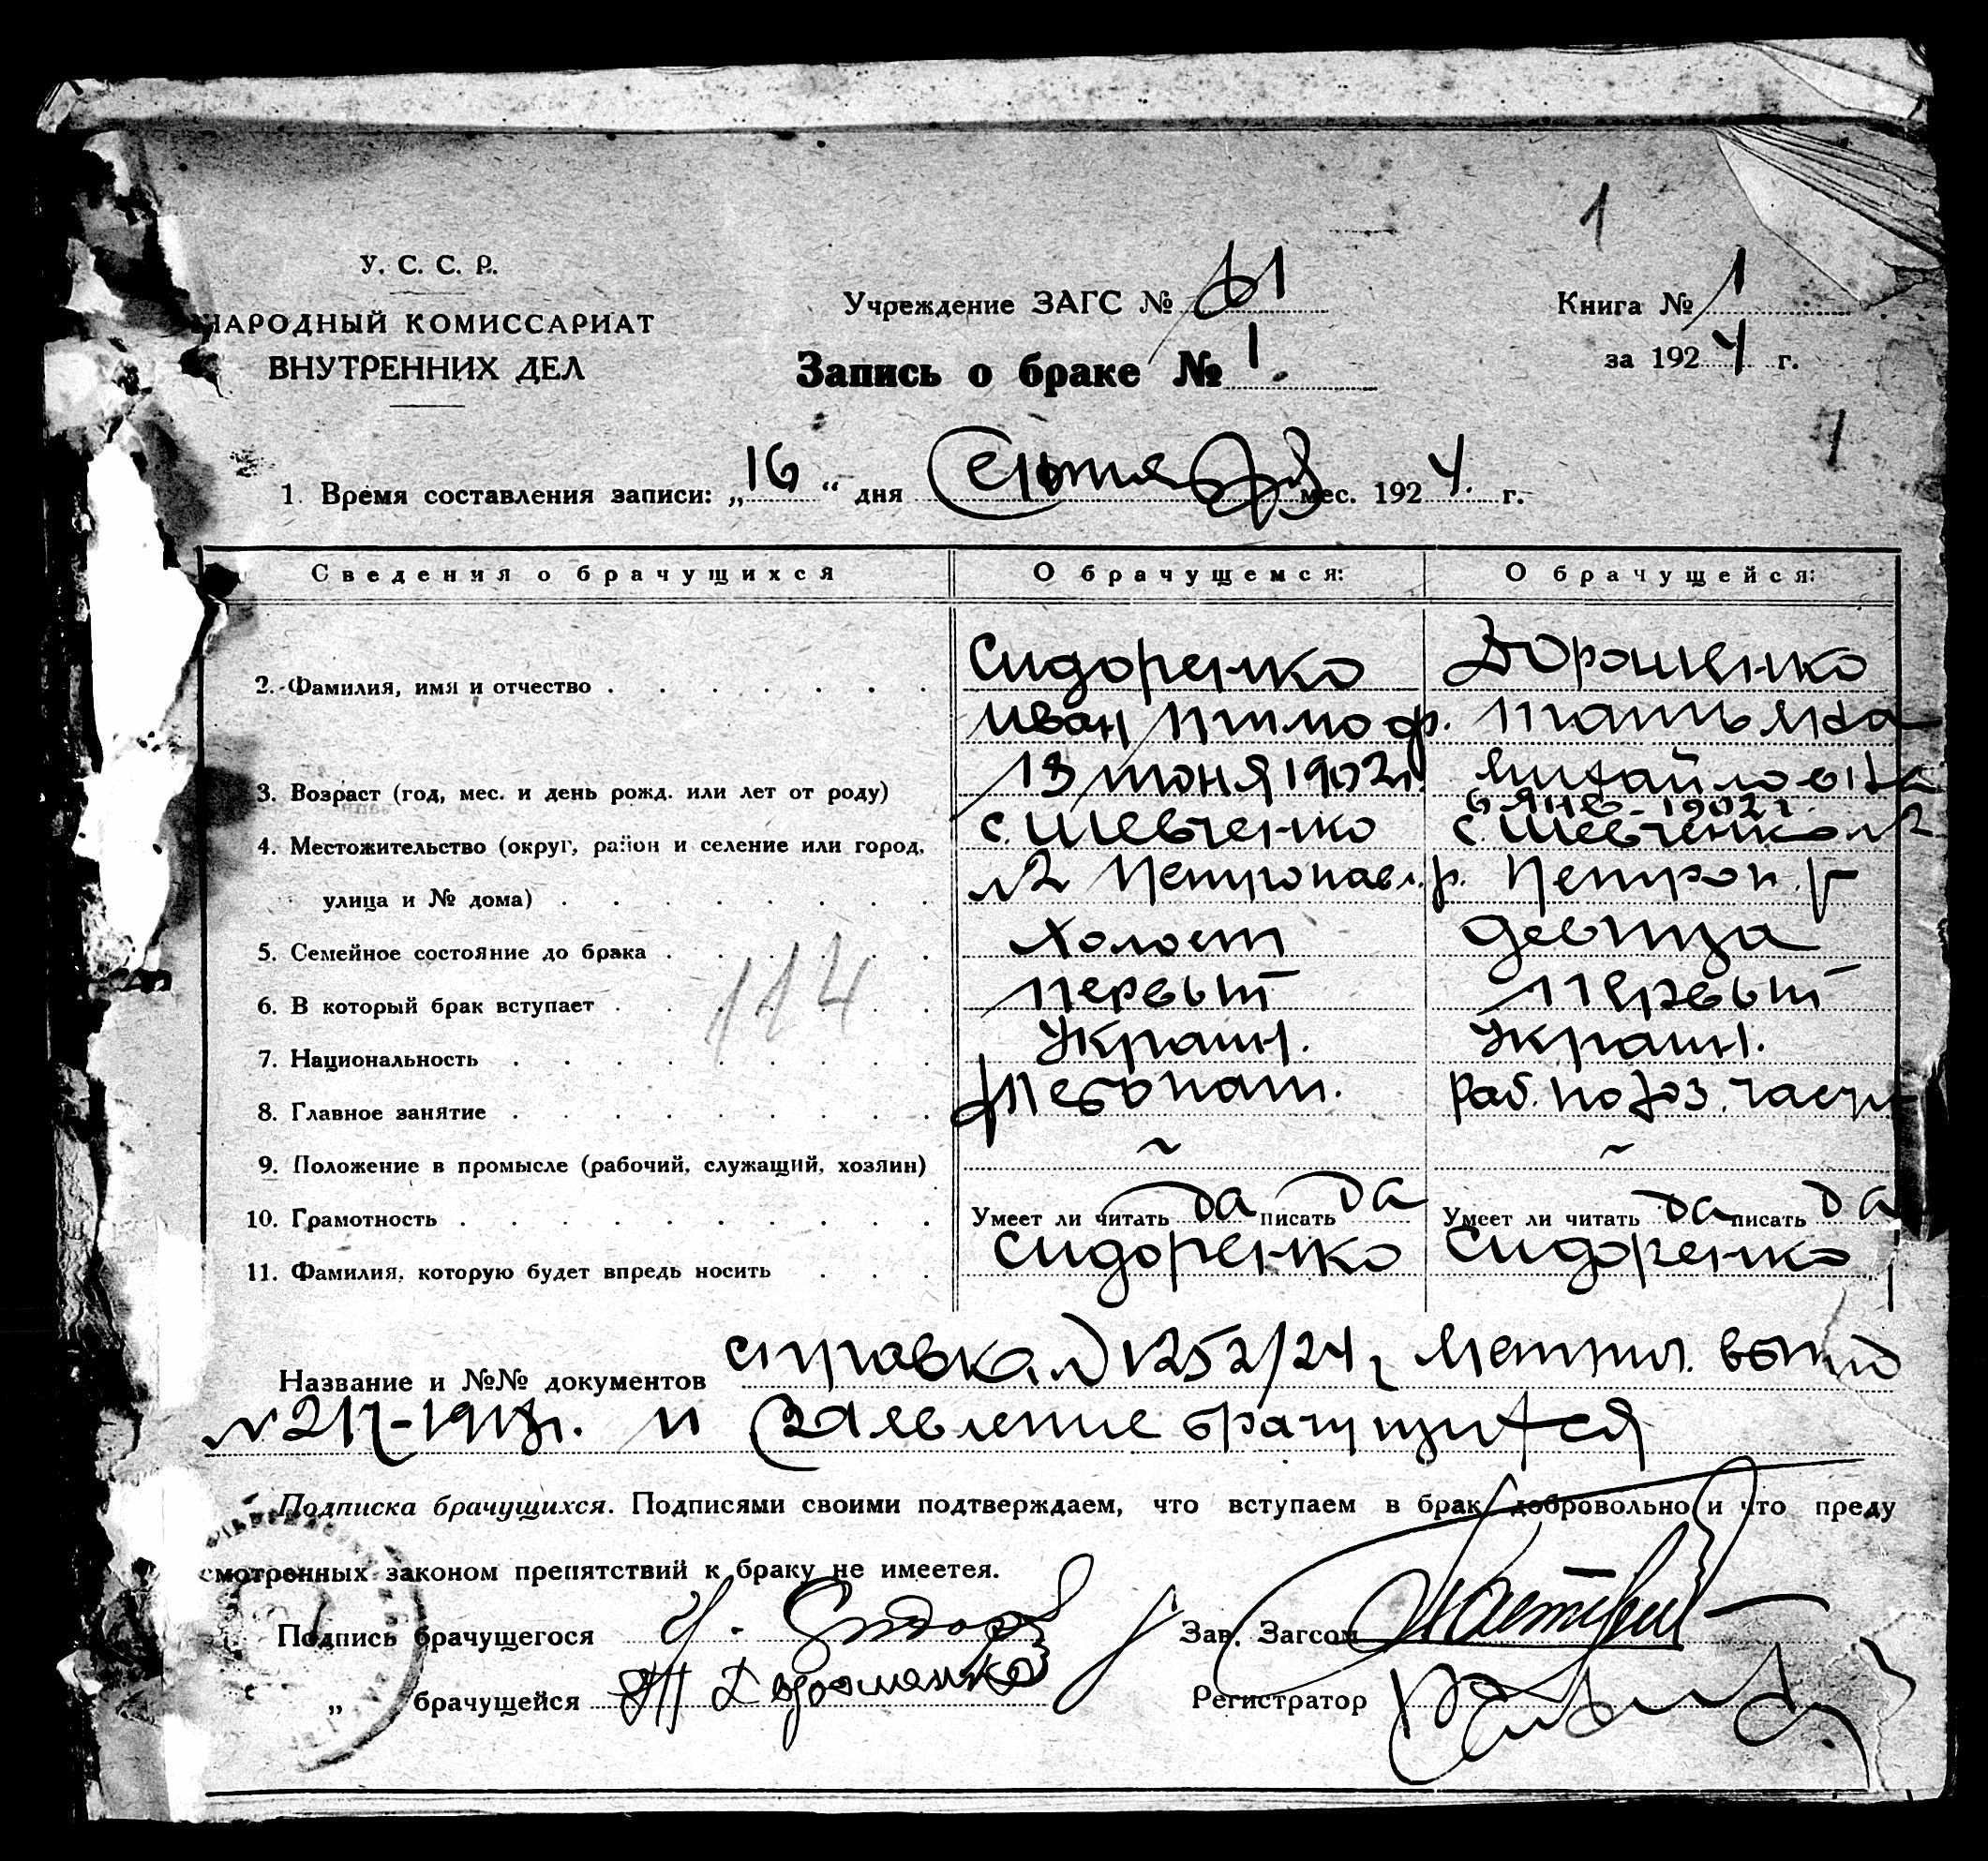 1
У. С. С. Р.
НАРОДНЫЙ КОМИССАРИАТ
ВНУТРЕННИХ ДЕЛ
Учреждение ЗАГС № 61
Запись о браке № 1.
Книга № 1
за 1924 г.
1
1. Время составления записи: „16“ дня Сентября мес. 1924. г.
Сведения о брачущихся О брачущемся: О брачущейся:
2. Фамилия, имя и отчество Сидоренко Дорошенко
Иван Тимоф. Татьяна
Михайловна
3. Возраст (год, мес. и день рожд. или лет от роду) 13 июня 1902 г. 6 Янв. 1902 г.
4. Местожительство (округ, район и селение или город, с. Шевченко с. Шевченко №2
улица и № дома) №2 Петропавл. р. Петроп. р
5. Семейное состояние до брака Холост девица
6. В который брак вступает Первый Первый
7. Национальность Украин. Украин.
114
8. Главное занятие Хлебопаш. раб. по хоз. части
9. Положение в промысле (рабочий, служащий, хозяин) ~ ~
10. Грамотность Умеет ли читать да писать да Умеет ли читать да писать да
11. Фамилия, которую будет впредь носить Сидоренко Сидоренко
Название и №№ документов справка № 1252/24 г Метрич. выпис
и Заявление брачущихся
Подписка брачущихся. Подписями своими подтверждаем, что вступаем в брак добровольно и что преду
смотренных законом препятствий к браку не имеется.
Подпись брачущегося И. Сидор Зав. Загсом
„ брачущейся Т Дорошенко Регистратор